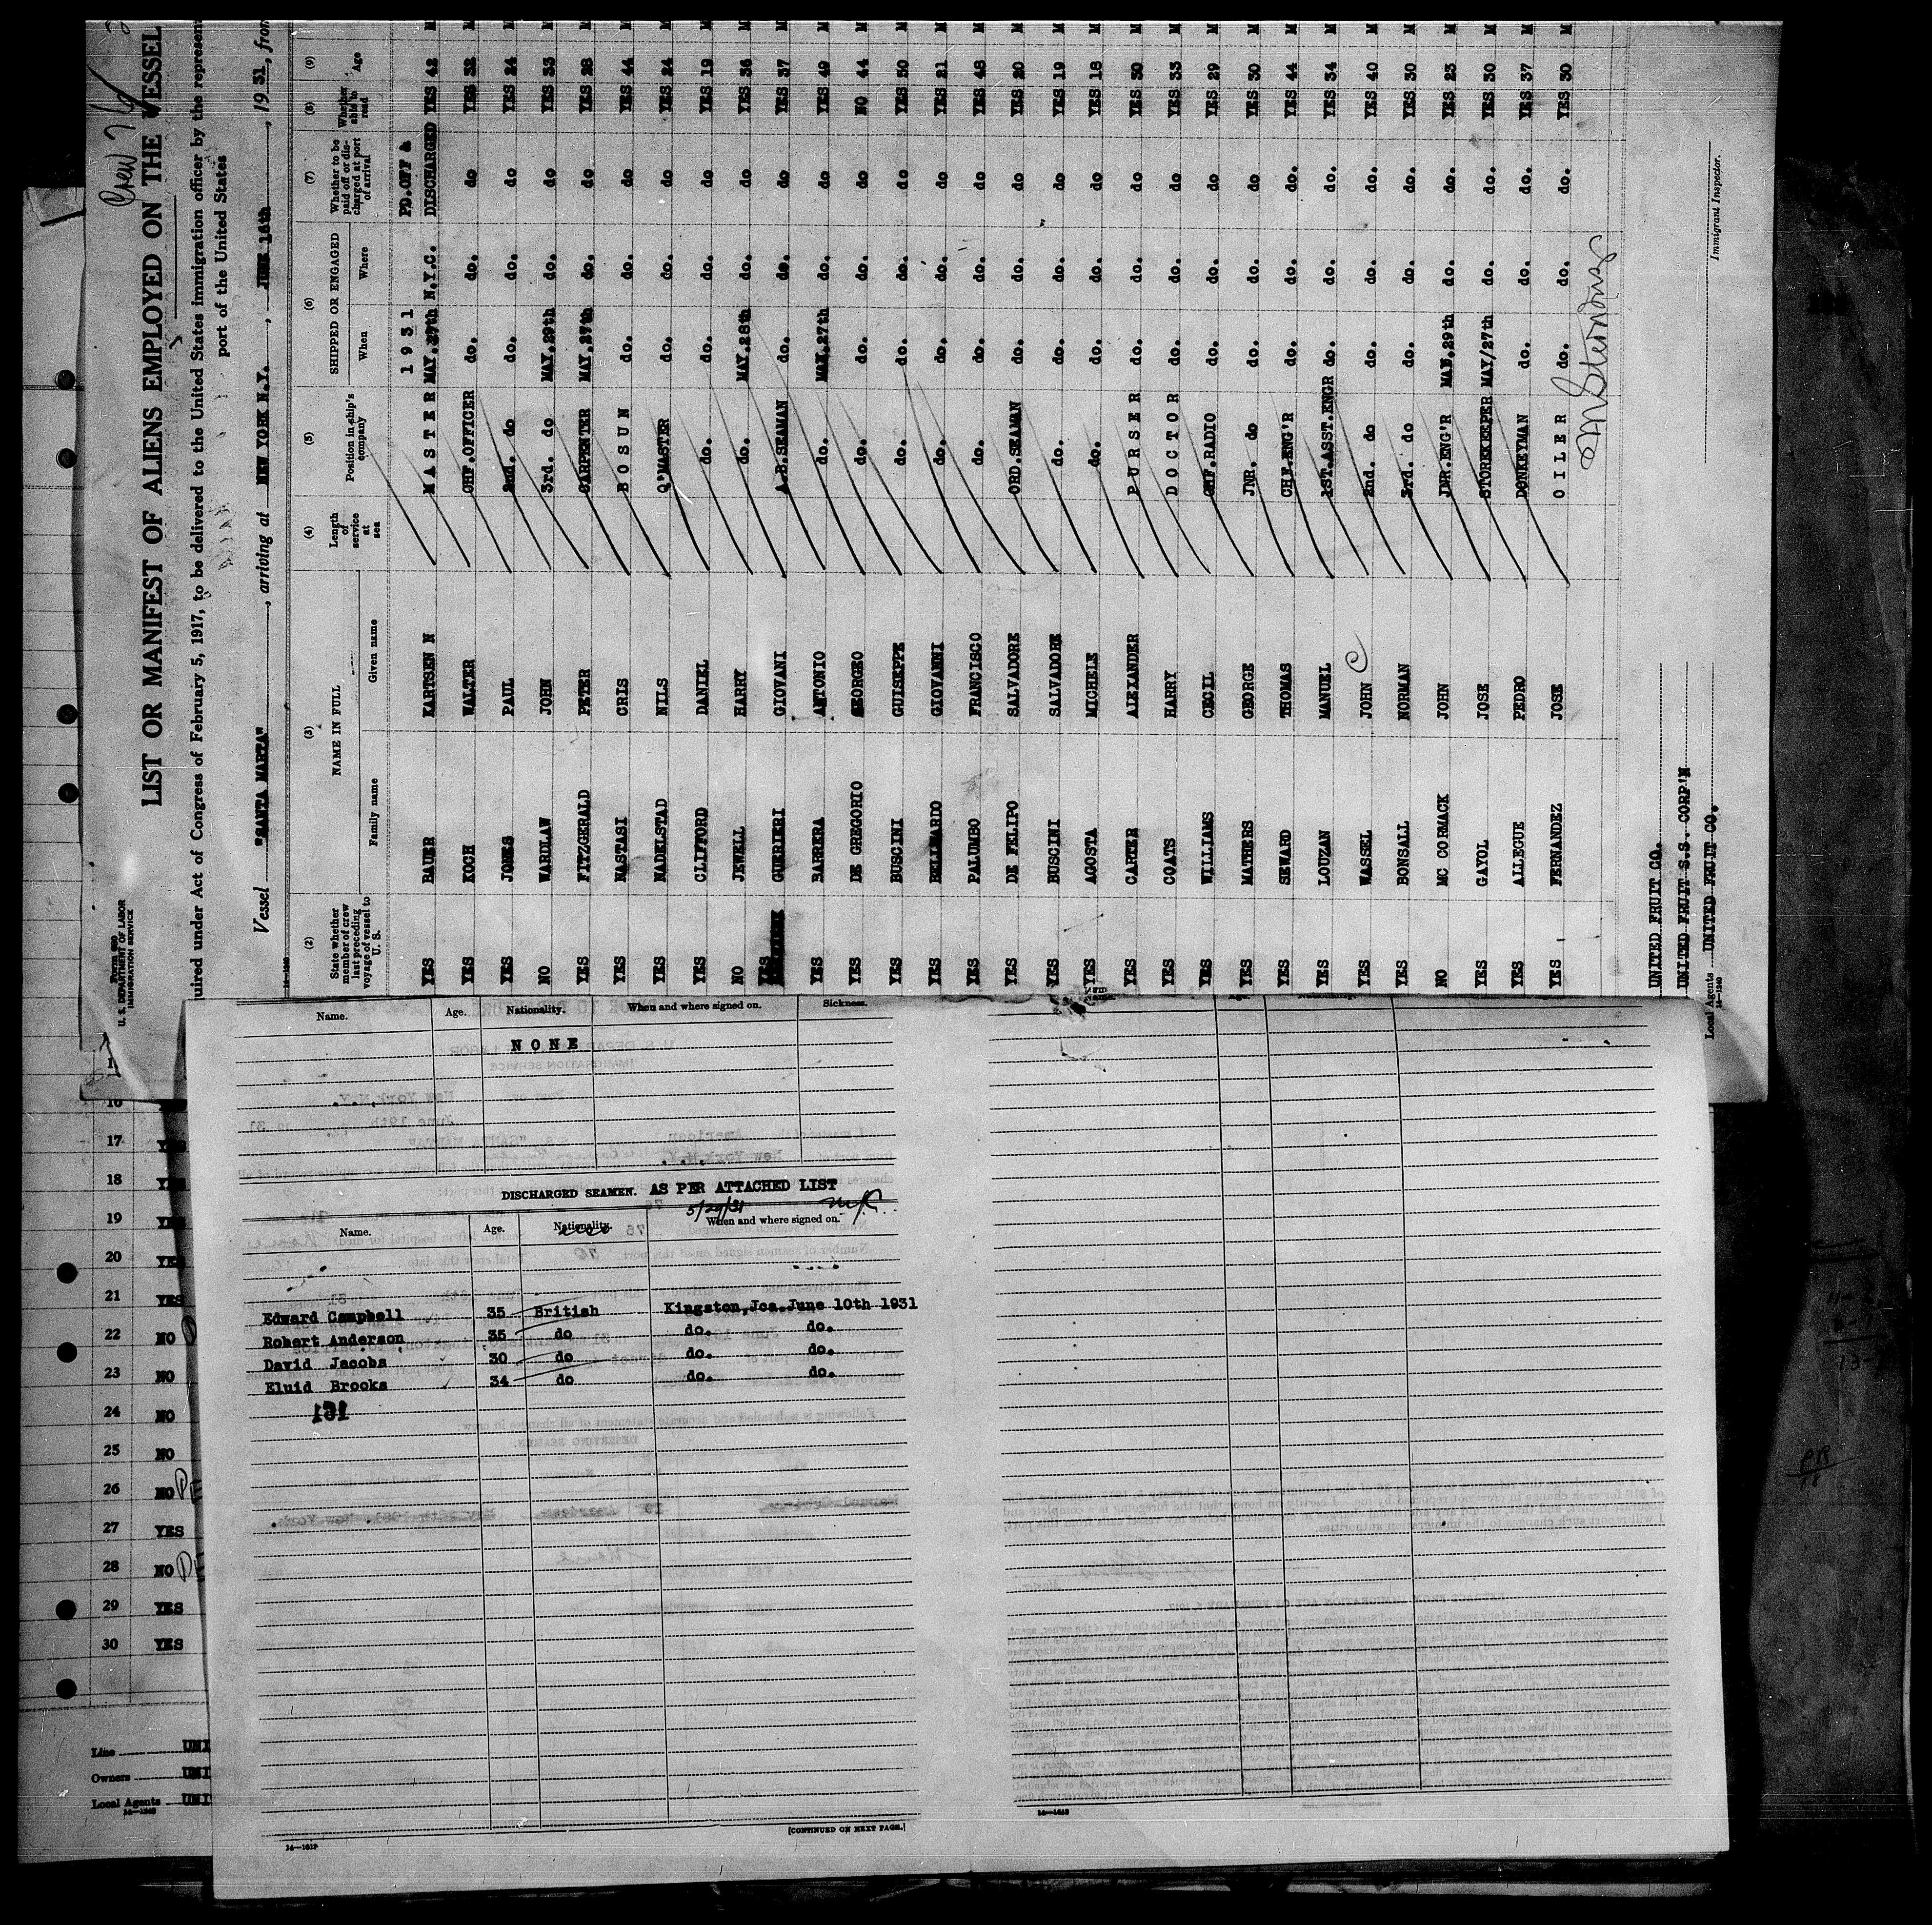 Form 680
U. S. DEPARTMENT OF LABOR
IMMIGRATION SERVICE
Crew 76
LIST OR MANIFEST OF ALIENS EMPLOYED ON THE VESSEL
quired under Act of Congress of February 5, 1917, to be delivered to the United States immigration officer by the represen
port of the United States
Vessel "SANTA MARTA", arriving at NEW YORK N.Y., JUNE 16th, 19 31, from
(2) (3) (4) (5) (6) (7) (8) (9)
State whether member of crew last preceding voyage of vessel to U. S.
NAME IN FULL
Family name Given name
Length of service at sea
Position in ship's company
SHIPPED OR ENGAGED
When Where
Whether to be paid off or discharged at port of arrival
Whether able to red
Age
1931 PD.OFF &
YES BAUER KARTSEN N MASTER MAY.27th N.Y.C. DISCHARGED YES 42 M
YES KOCH WALTER CHF.OFFICER do. do. do YES 32 M
YES JONES PAUL 2nd. do do. do. do YES 24 M
NO WARDLAW JOHN 3rd. do MAY.29th do. do YES 33 M
YES FITZGERALD PETER CARPENTER MAY.27th do. do YES 28 M
YES MASTASI CRIS BOSUN do. do. do YES 44 M
YES NADELSTAD NILS Q'MASTER do. do. do YES 24 M
YES CLIFFORD DANIEL do. do. do. do YES 19 M
NO JEWELL HARRY do. MAY.28th do. do YES 36 M
YES GUERIERI GIOVANI A.B.SEAMAN do. do. do YES 37 M
YES BARRERA ANTONIO do. MAY.27th do. do YES 49 M
YES DE GREGORIO GEORGEO do. do. do. do NO 44 M
YES BUSCINI GUISEPPE do. do. do. do YES 50 M
YES BELLMARDO GIOVANNI do. do. do. do YES 21 M
YES PALUMBO FRANCISCO do. do. do. do YES 48 M
YES DE FELIPO SALVADORE ORD.SEAMAN do. do. do YES 20 M
YES BUSCINI SALVADORE do. do. do. do YES 19 M
YES AGOSTA MICHELE do. do. do. do YES 18 M
YES CARTER ALEXANDER PURSER do. do. do YES 30 M
YES COATS HARRY DOCTOR do. do. do YES 33 M
YES WILLIAMS CECIL CHF.RADIO do. do. do YES 29 M
YES MATHERS GEORGE JNR. do do. do. do YES 30 M
YES SEWARD THOMAS CHF.ENG'R do. do. do. YES 44 M
YES LOUZAN MANUEL 1ST.ASST.ENGR do. do. do. YES 34 M
YES WASSEL JOHN 2nd. do do. do. do. YES 40 M
YES BONSALL NORMAN 3rd. do do. do. do. YES 30 M
NO MC CORMACK JOHN JNR.ENG'R MAY.29th do. do. YES 23 M
YES GAYOL JOSE STOREKEEPER MAY/27th do. do. YES 30 M
YES ALLEGUE PEDRO DONKEYMAN do. do. do. YES 37 M
YES FERNANDEZ JOSE OILER do. do. do. YES 30 M
UNITED FRUIT CO.
UNITED FRUIT S.S. CORP'N
Local Agents UNITED FRUIT CO.
Immigrant Inspector.
Name. Age. Nationality. When and where signed on. Sickness.
NONE
DISCHARGED SEAMEN. AS PER ATTACHED LIST
5/29/31
Name. Age. Nationality. When and where signed on.
Edward Campbell 35 British Kingston,Jca.June 10th 1931
Robert Anderson 35 do do. do.
David Jacobs 30 do do. do.
Eluid Brooks 34 do do. do.
131
[CONTINUED ON NEXT PAGE.]
16
17 YES
18 YES
19 YES
20 YES
21 YES
22 NO
23 NO
24 NO
25 NO
26 NO
27 YES
28 NO
29 YES
30 YES
Line UNI
Owners UNI
Local Agents UNI